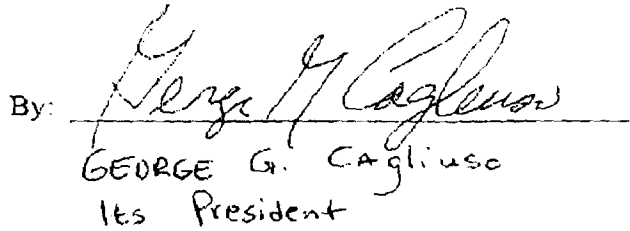 By: George G Cagliuso
GEORGE G. CAgliuso
Its President